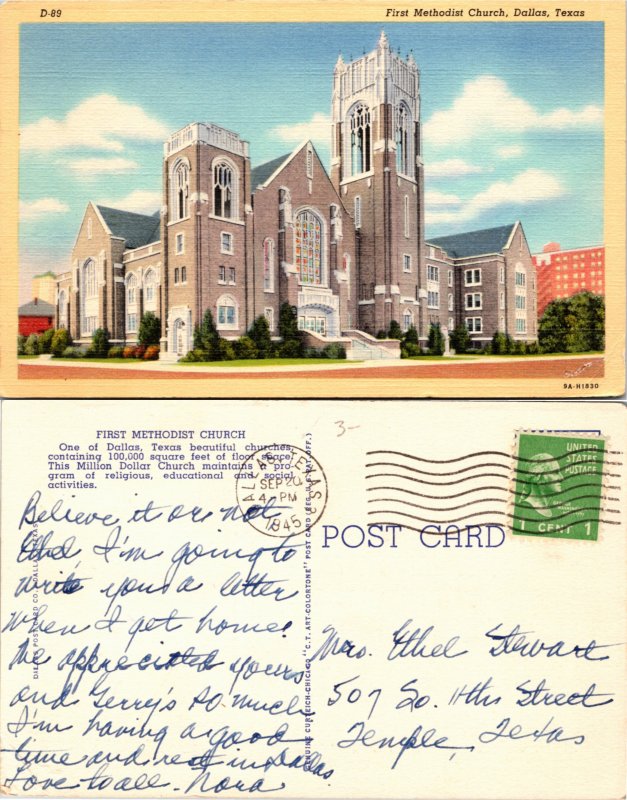 D-89
First Methodist Church, Dallas, Texas
9A-H1830
FIRST METHODIST CHURCH
One of Dallas, Texas beautiful churches,
containing 100,000 square feet of floor space.
This Million Dollar Church maintains a pro-
gram of religious, educational and social
activities.
3-
DALLAS, TEXAS
SEP 20
4 PM
1945
UNITED
STATES
POSTAGE
1 CENT 1
POST CARD
Believe it or not
Ethel, I'm going to
write you a letter
when I get home!
We appreciated yours
and Gerry's so much
I'm having a good
time and rest in Dallas
Love to all - Nora
Mrs. Ethel Stewart
507 So. 11th Street
Temple, Texas
DALLAS POST CARD CO., DALLAS, TEXAS
GENUINE CURTEICH-CHICAGO "C.T. ART-COLORTONE" POST CARD (REG. U.S. PAT. OFF.)